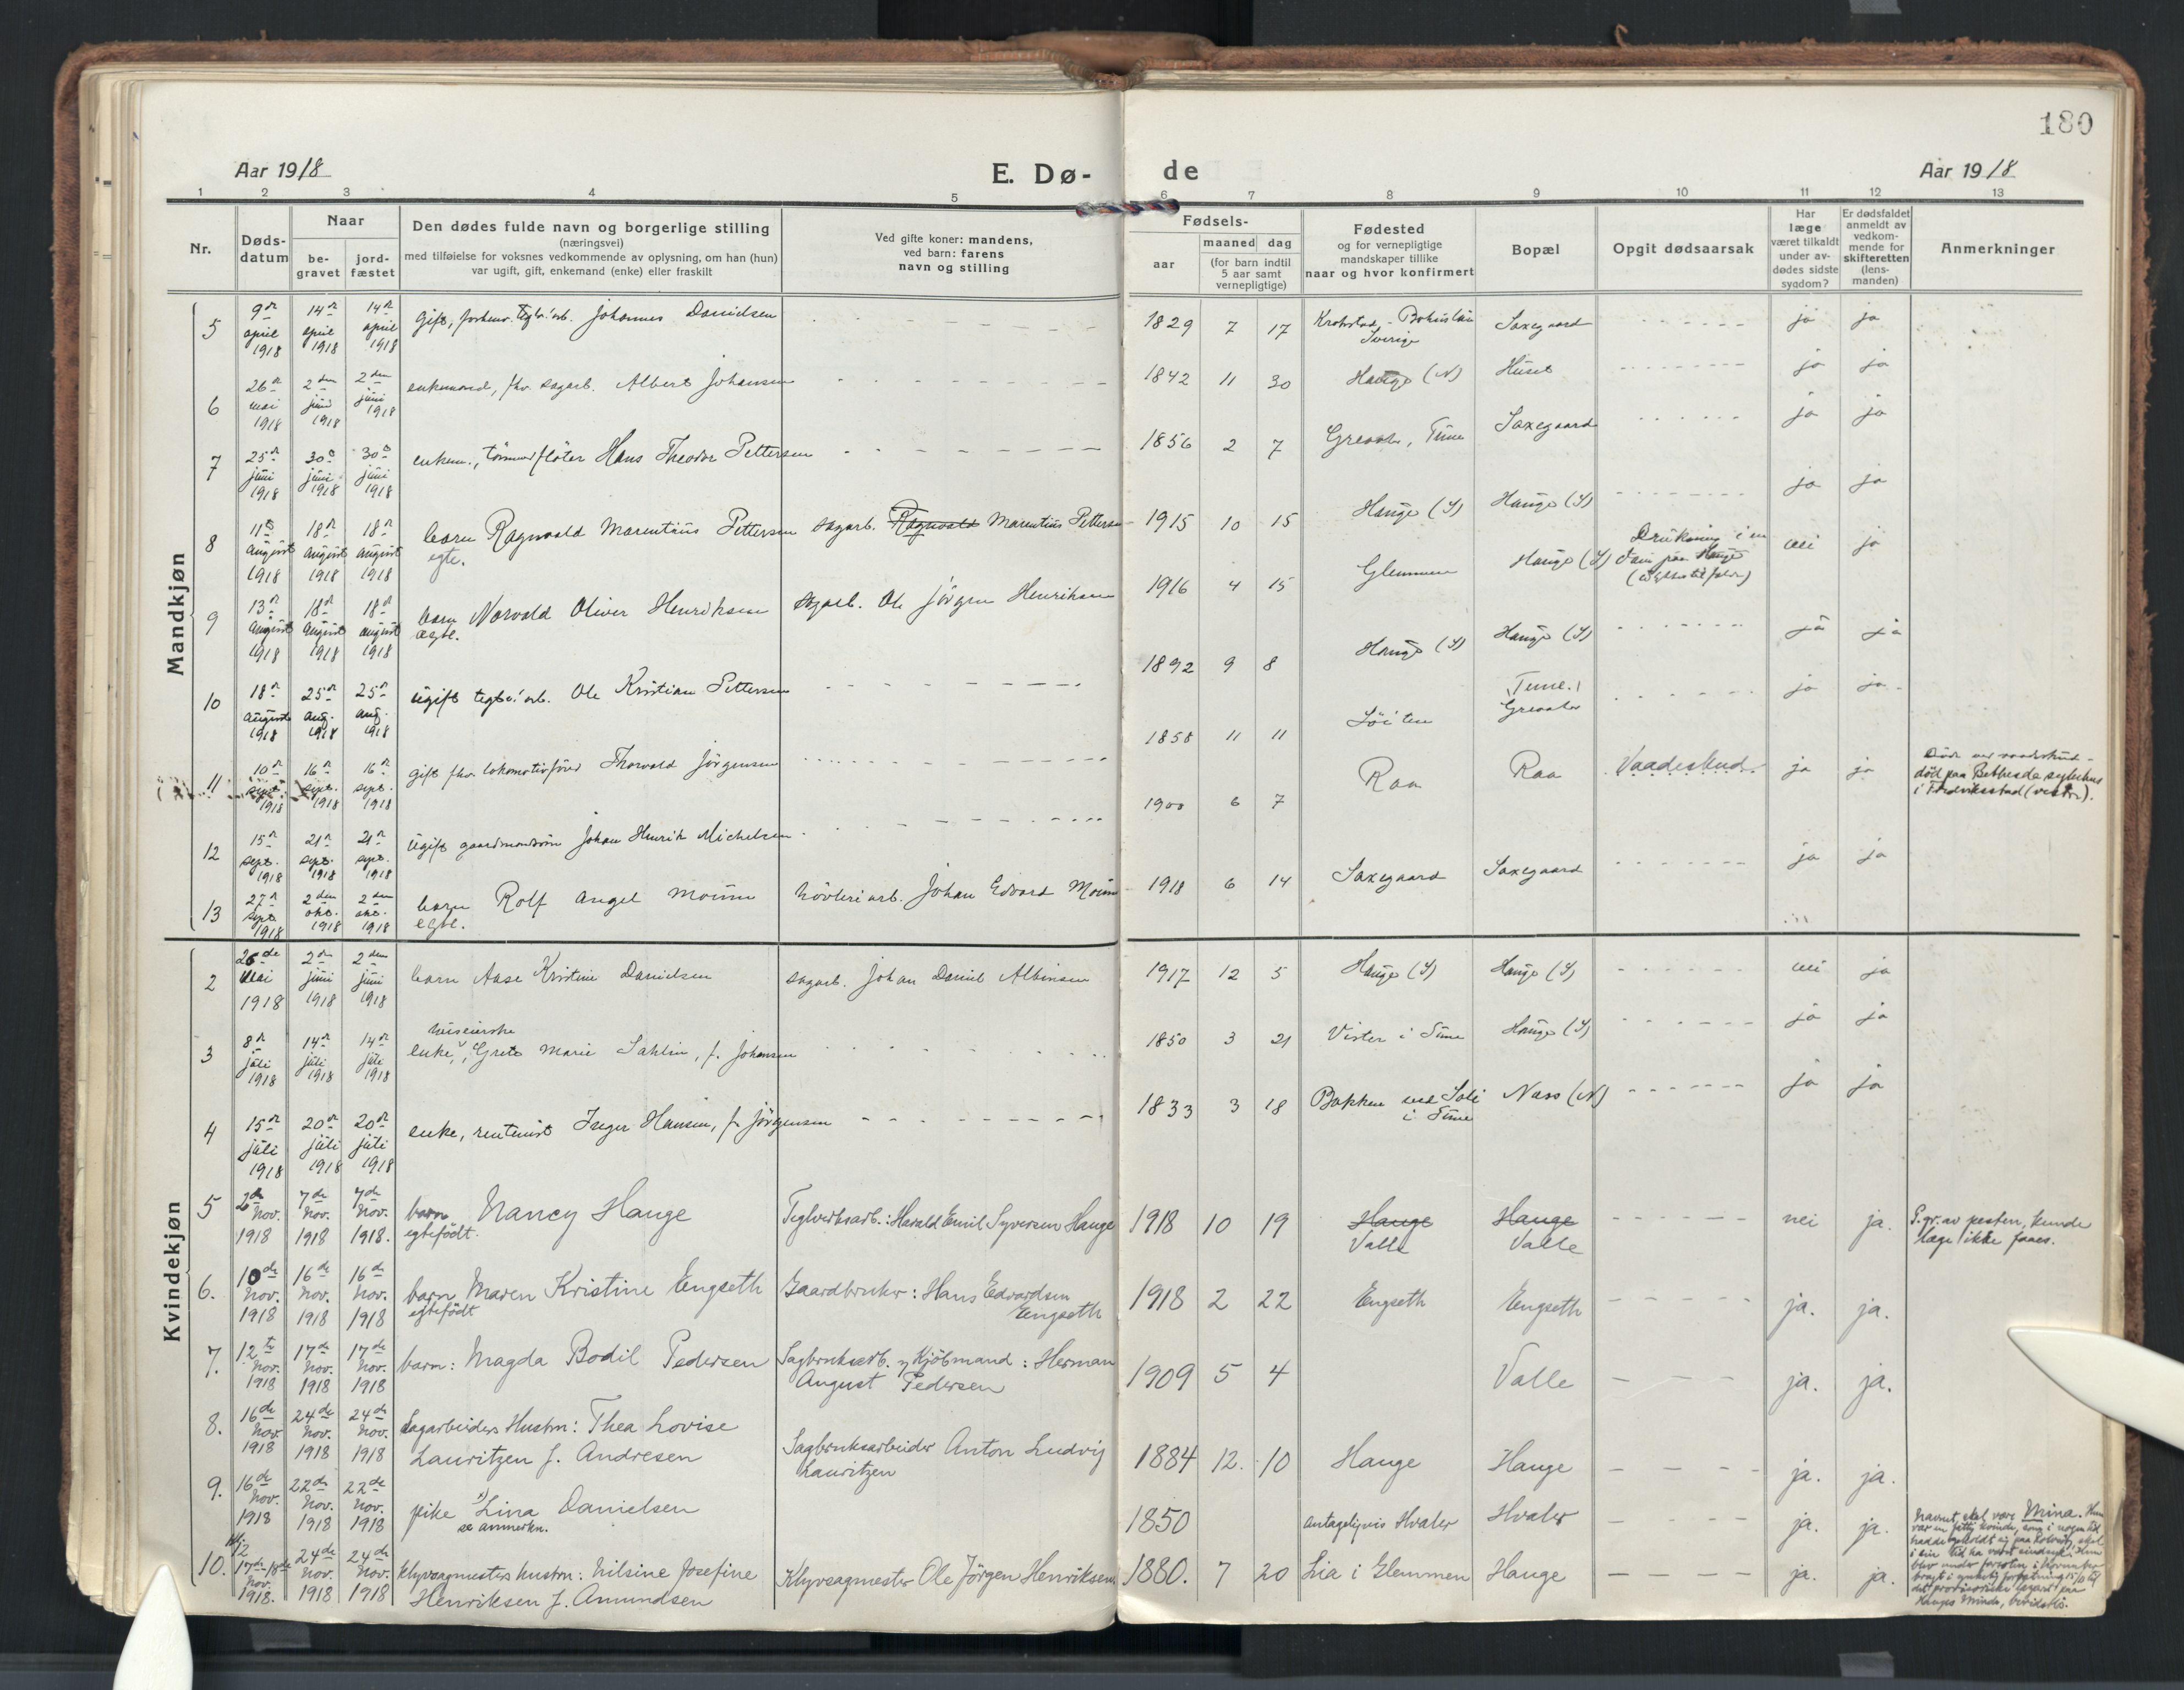 180
Aar 1918
E. Dø-
de
Aar 1918
1 2 3 4 5 6 7 8 9 10 11 12 13
Nr.
Døds-
datum
Naar
be-
gravet
jord-
fæstet
Den dødes fulde navn og borgerlige stilling
(næringsvei)
med tilføielse for voksnes vedkommende av oplysning, om han (hun)
var ugift, gift, enkemand (enke) eller fraskilt
Ved gifte koner: mandens,
ved barn: farens
navn og stilling
Fødsels-
aar
maaned dag
(for barn indtil
5 aar samt
vernepligtige)
Fødested
og for vernepligtige
mandskaper tillike
naar og hvor konfirmert
Bopæl
Opgit dødsaarsak
Har
læge
været tilkaldt
under av-
dødes sidste
sygdom?
Er dødsfaldet
anmeldt av
vedkom-
mende for
skifteretten
(lens-
manden)
Anmerkninger
Mandkjøn
5 9de april 1918 14de april 1918 14de april 1918 Gift, forhenv. teglv. arb. Johannes Danielsen 1829 7 17 Krokstad, Bohuslän Sverige Saxegaard ja ja
6 26de mai 1918 2den juni 1918 2den juni 1918 enkemand, fhv. sagarb. Albert Johansen 1842 11 30 Hauge (N) Huset ja ja
7 25de juni 1918 30te juni 1918 30te juni 1918 enkem., tømmerfløter Hans Theodor Pettersen 1856 2 7 Greaaker, Tune Saxegaard ja ja
8 11te august 1918 18de august 1918 18de august 1918 barn Ragnvald Marentius Pettersen egte. sagarb. Ragnvald Marentius Pettersen 1915 10 15 Hauge (S) Hauge (S) ja ja
9 13de august 1918 18de august 1918 18de august 1918 barn Norvald Oliver Henriksen egte. sagarb. Ole Jörgen Henriksen 1916 4 15 Glemmen Hauge (S) Drukning i en dam paa Hauge nei ja
10 18de august 1918 25de aug. 1918 25de aug. 1918 ugift teglv. arb. Ole Kristian Pettersen 1892 9 8 Hauge (S) Hauge (S) ja ja
11 10de sept. 1918 16de sept. 1918 16de sept. 1918 gift fhv. lokomotivfører Thorvald Jörgensen 1858 11 11 Löiten (Tune.) Greaaker ja ja
12 15de sept. 1918 21de sept. 1918 21de sept. 1918 ugift gaardmandssön Johan Henrik Michelsen 1900 6 7 Raa Raa Vaadeskud ja ja död paa Bethesda sykehus i Fredriksstad (vestre).
13 27de sept. 1918 2den okt. 1918 2den okt. 1918 barn Rolf Angel Moum egte. hövleriarb. Johan Edvard Moum 1918 6 14 Saxegaard Saxegaard ja ja
Kvindekjøn
2 26de mai 1918 2den juni 1918 2den juni 1918 barn Aase Kristine Danielsen sagarb. Johan Daniel Albinsen 1917 12 5 Hauge (S) Hauge (S) nei ja
3 8de juli 1918 14de juli 1918 14de juli 1918 enke, huseierske Grete Marie Sahlin, f. Johansen 1850 3 21 Vister i Tune Hauge (S) ja ja
4 15de juli 1918 20de juli 1918 20de juli 1918 enke, rentenist Inger Hansen, f. Jörgensen 1833 3 18 Bakken ved Soli i Tune Næs (N) ja ja
5 2den Nov. 1918 7de Nov. 1918 7de Nov. 1918. barn Nancy Hauge egtefödt. Teglverksarb.: Harald Emil Syversen Hauge 1918 10 19 Hauge Valle Hauge Valle nei ja. P. gr. av pesten, kunde læge ikke faaes.
6. 10de Nov. 1918 16de Nov. 1918 16de Nov. 1918 barn Maren Kristine Engseth egtefödt Gaardbruker: Hans Edvardsen Engseth 1918 2 22 Engseth Engseth ja. ja.
7. 12te Nov. 1918 17de Nov. 1918 17de Nov. 1918 barn: Magda Bodil Pedersen Sagbruksarb. og Kjöbmand: Herman August Pedersen 1909 5 4 Valle ja. ja.
8. 16de Nov. 1918 24de Nov. 1918 24de Nov. 1918 Sagarbeiders Hustru: Thea Lovise Lauritzen f. Andresen Sagbruksarbeider Anton Ludvig Lauritzen 1884 12. 10 Hauge Hauge ja. ja.
9. 16de Nov. 1918 22de Nov. 1918 22de Nov. 1918 pike x) Lina Danielsen se anmerkn. 1850 antageligvis Hvaler Hvaler ja. ja. Navnet skal være Mina. Hun var en fattig kvinde, som i nogen tid hadde opholdt sig
10. 17de-18de Nov. 1918. 24de Nov. 1918 24de Nov. 1918 Klyvsagmesters hustru: Nilsine Josefine Henriksen f. Amundsen Klyvsagmester Ole Jörgen Henriksen 1880. 7 20 Lia i Glemmen Hauge ja. ja.